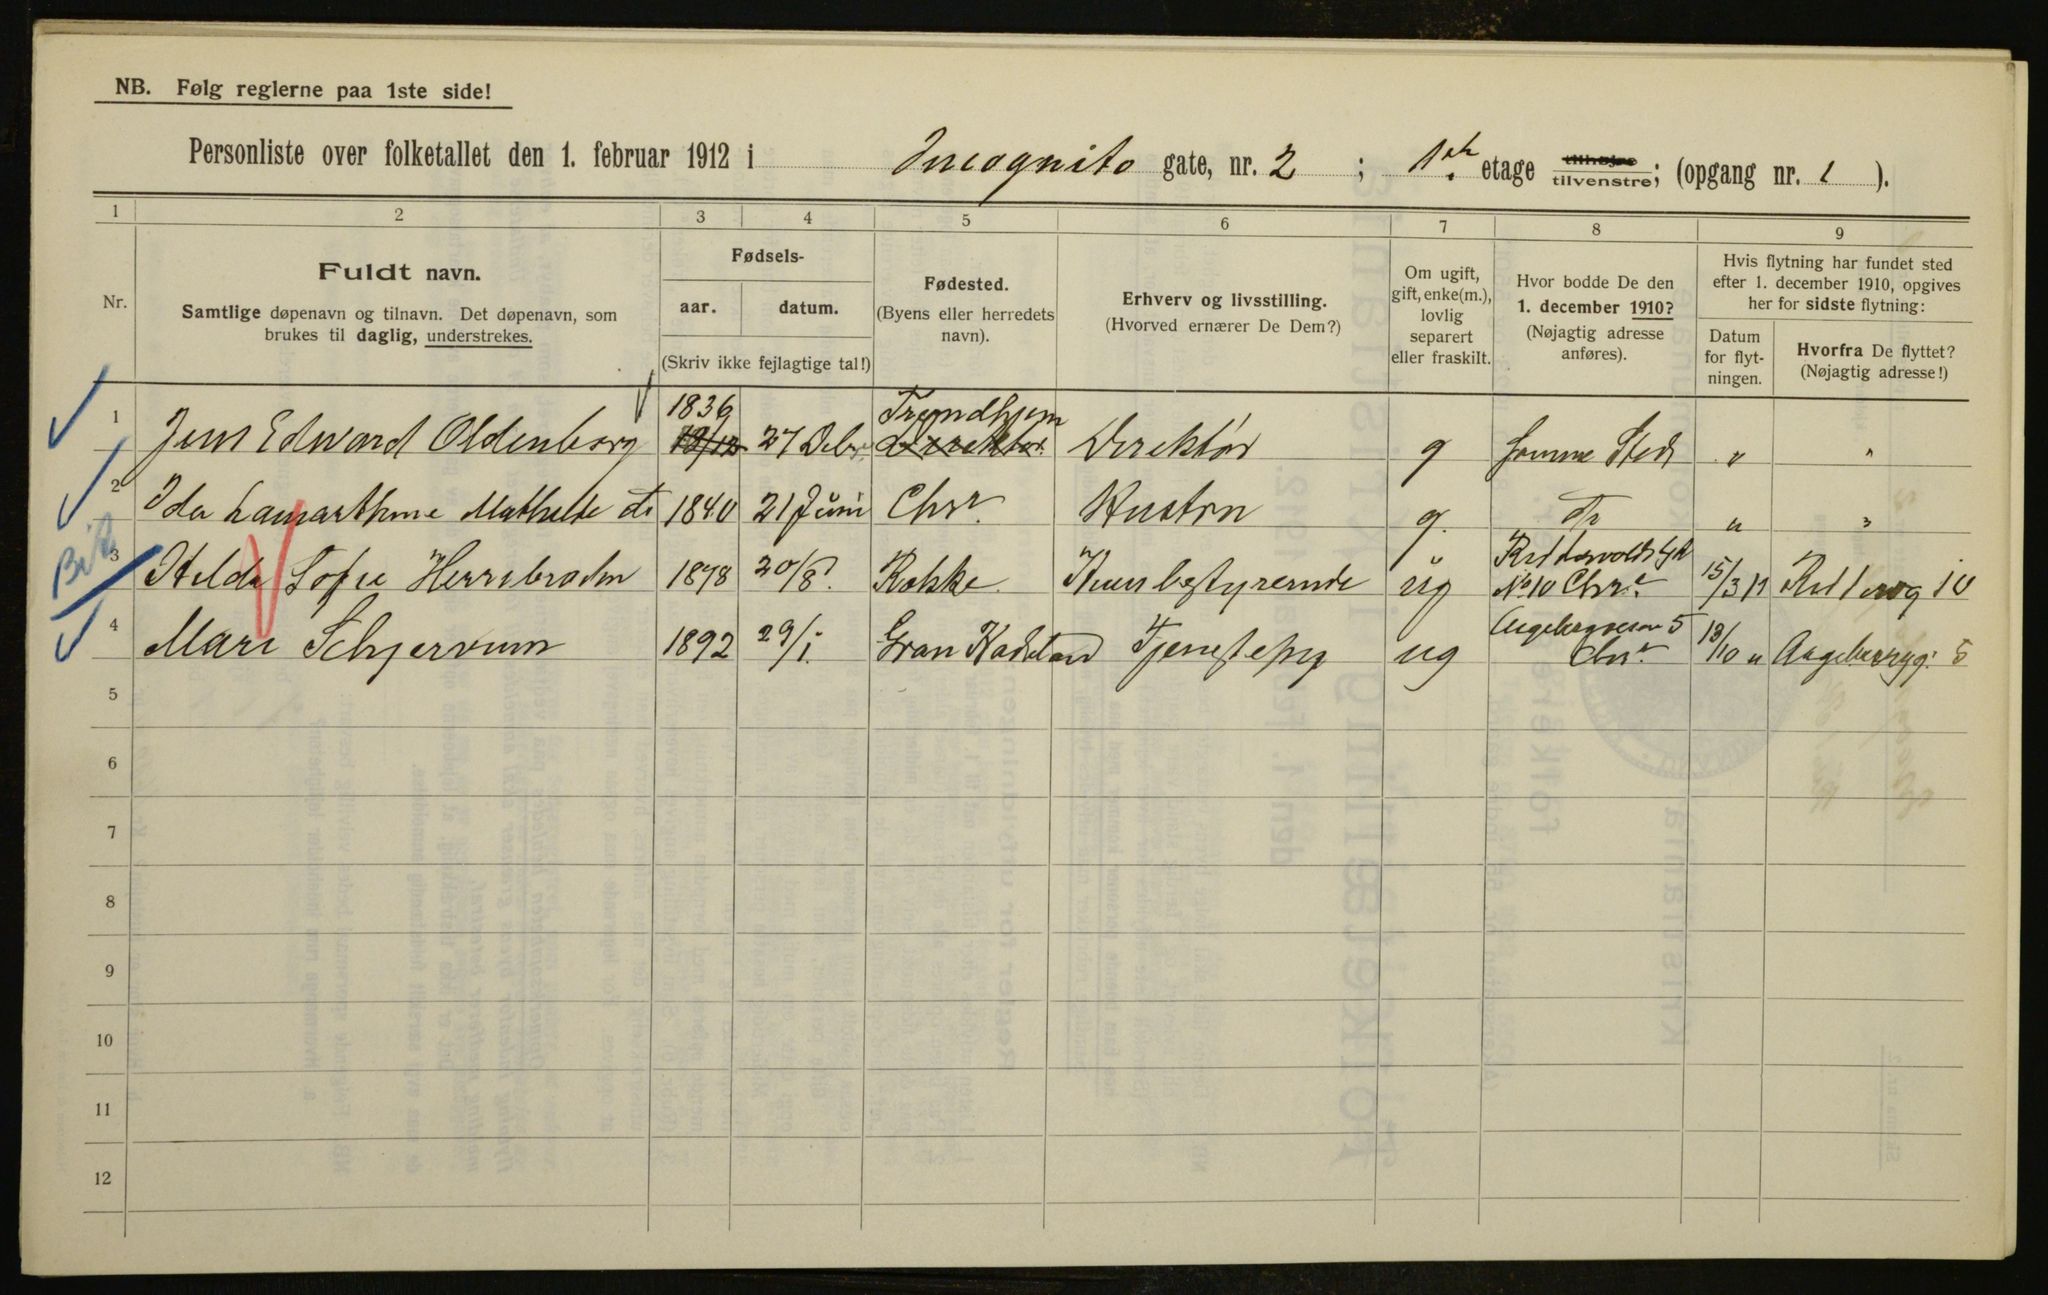 NB. Følg reglerne paa 1ste side!
Personliste over folketallet den 1. februar 1912 i Incognito gate, nr. 2 ; 1st etage tilhøjre tilvenstre; (opgang nr. 1 ).
1 2 3 4 5 6 7 8 9
Nr.
Fuldt navn.
Samtlige døpenavn og tilnavn. Det døpenavn, som
brukes til daglig, understrekes.
Fødsels-
aar. datum.
(Skriv ikke fejlagtige tal!)
Fødested.
(Byens eller herredets
navn).
Erhverv og livsstilling.
(Hvorved ernærer De Dem?)
Om ugift,
gift, enke(m.),
lovlig
separert
eller fraskilt.
Hvor bodde De den
1. december 1910?
(Nøjagtig adresse
anføres).
Hvis flytning har fundet sted
efter 1. december 1910, opgives
her for sidste flytning:
Datum
for flyt-
ningen.
Hvorfra De flyttet?
(Nøjagtig adresse!)
1 Jens Edward Oldenborg 1836 27 Debr. Trondhjem Direktør Direktør g Samme Sted " "
2 Ida Lamarthine Mathilde do 1840 21 Juni Chr. Hustru g. do " "
3 Hilda Sofie Herrebroden 1878 20/8. Rakke Husbestyrerinde ug No 10 Chr.a 15/3 11 10
4 Mari Schjervum 1892 29/1. Gran Hadeland Tjenestepig ug Aagebergveien 5 Chr.a 13/10 " Aagebergvg. 5
5
6
7
8
9
10
11
12